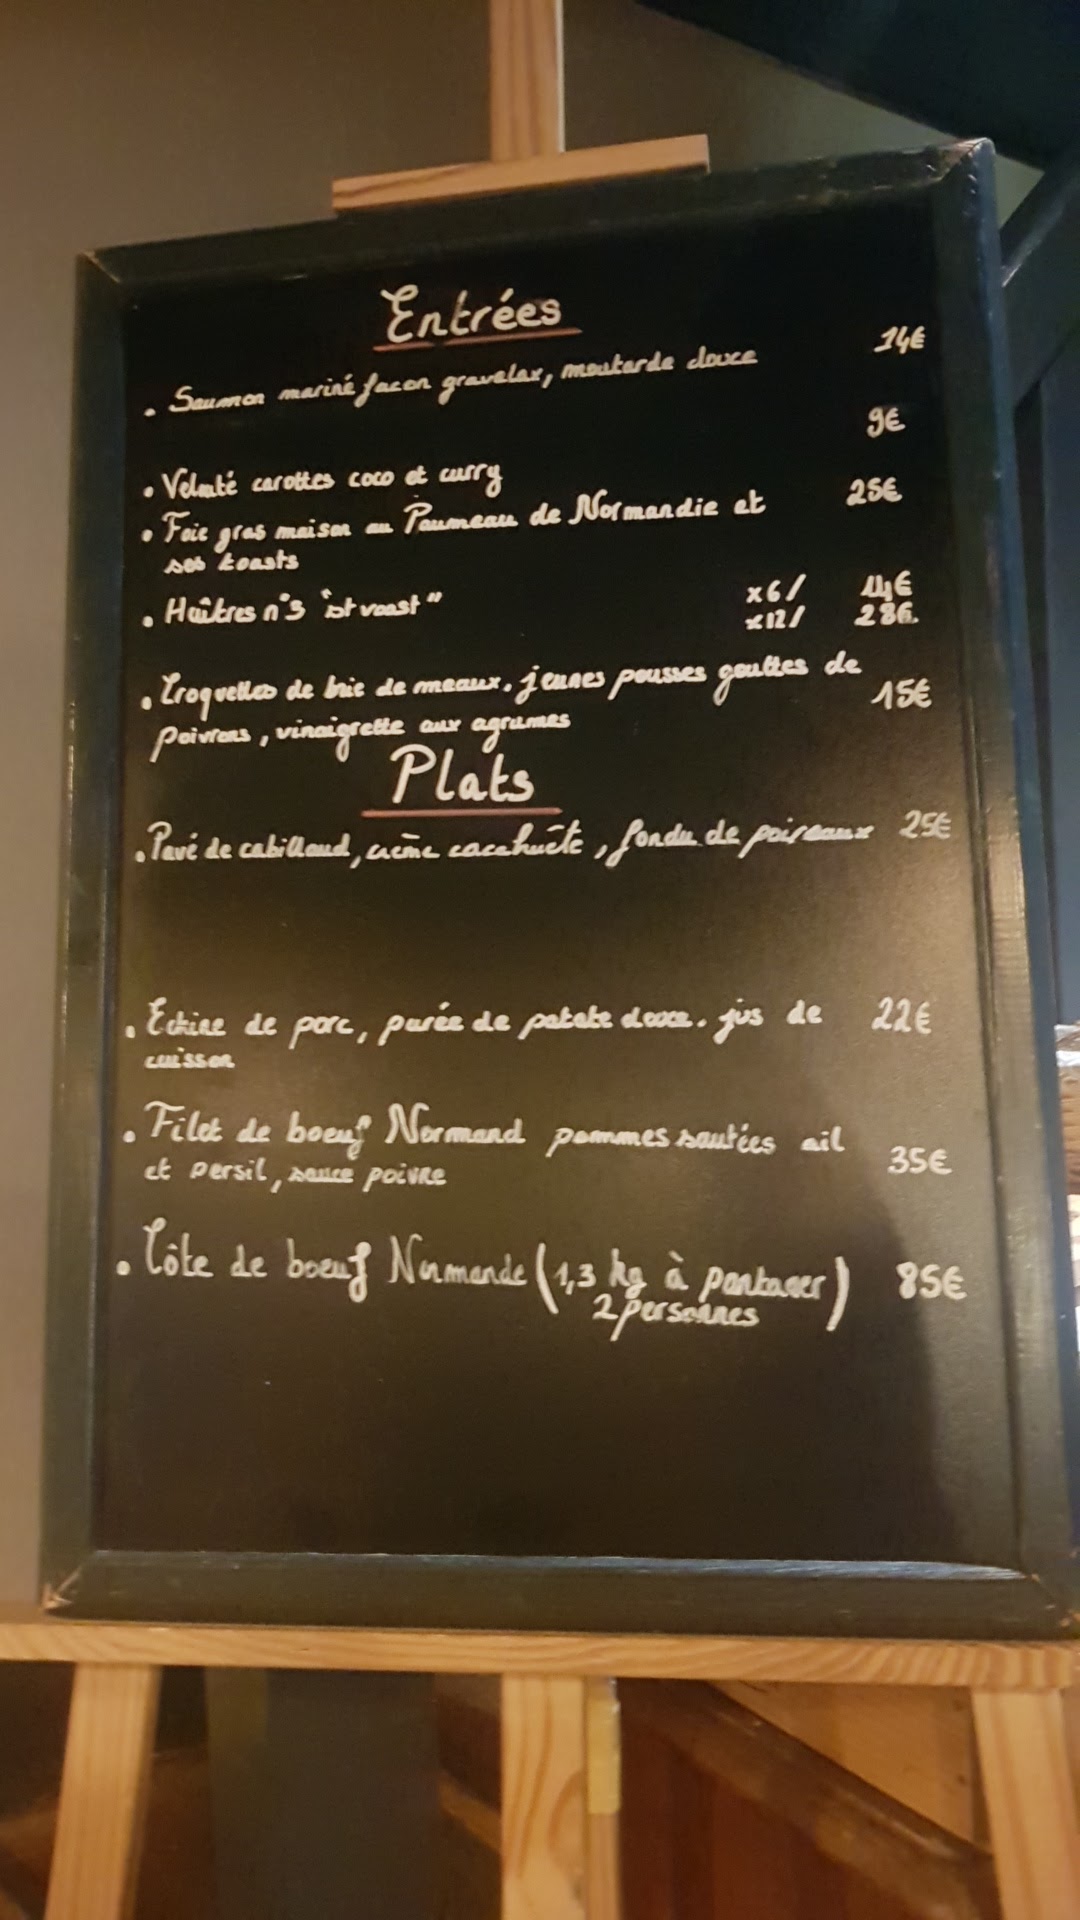 Entrées
• Saumon mariné facon gravelax, moutarde douce 14€
9€
• Velouté carottes coco et curry
• Foie gras maison au Poumeau de Normandie et 25€
ses toasts
• Huîtres n°3 "st vaast" x6/ 14€
x12/ 28€
• Croquettes de brie de meaux, jeunes pousses gouttes de
poivrons, vinaigrette aux agrumes 15€
Plats
• Pavé de cabillaud, crème cacahuète, fondu de poireaux 25€
• Echine de porc, purée de patate douce. jus de 22€
cuisson
• Filet de boeuf Normand pommes sautées ail
et persil, sauce poivre 35€
• Côte de boeuf Normande (1,3 kg à partager) 85€
2 personnes